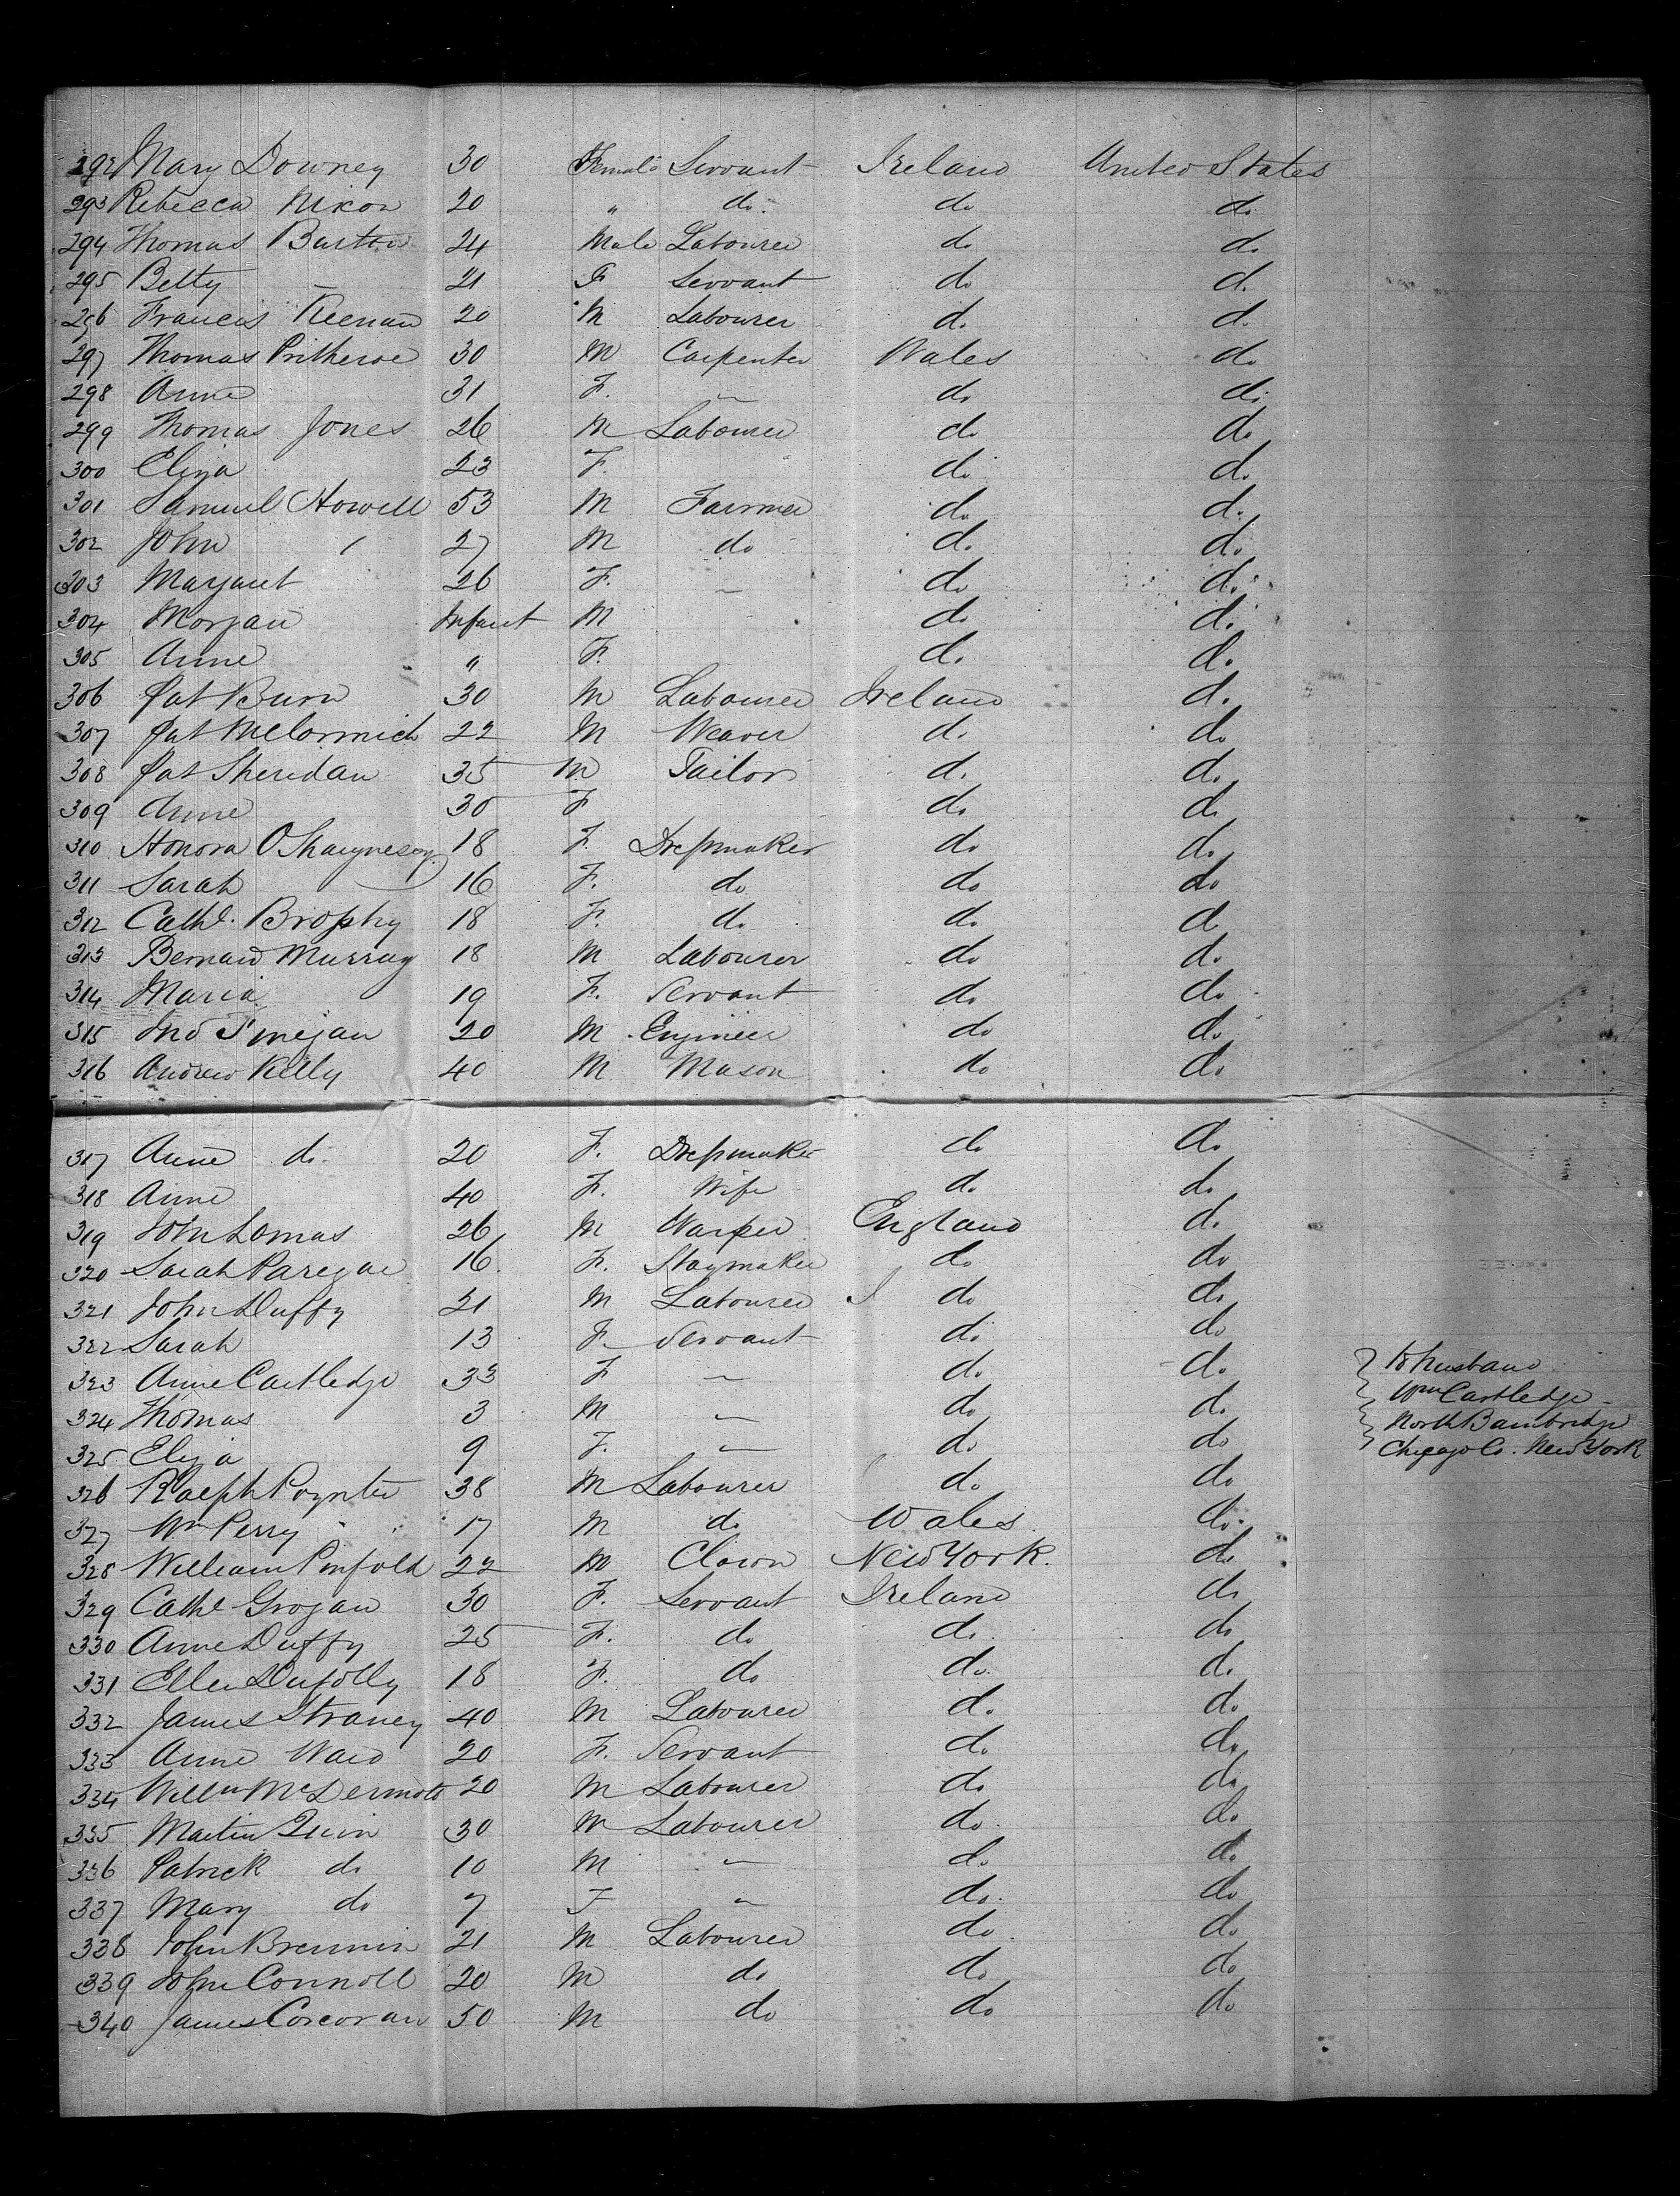 292 Mary Downey 30 Female Servant Ireland United States
293 Rebecca Nixon 20 " do. do do
294 Thomas 24 Male Labourer do do
295 Betty — 21 F Servant do do
296 Francis Keenan 20 M Labourer do do
297 Thomas Pritheroe 30 M Carpenter Wales do
298 Anne 31 F. — do do
299 Thomas Jones 26 M Labourer do do
300 Eliza 23 F. do do
301 Samuel Howell 53 M Farmer do do
302 John 27 M do do do
303 Margaret 26 F. — do do
304 Morgan Infant M do do
305 Anne " F. do do
306 Pat Burn 30 M Labourer Ireland do
307 Pat McCormick 22 M Weaver do do
308 Pat Sheridan 35 M Tailor do do
309 Anne 30 F do do
310 Honora OShaugnessy 18 F. Dressmaker do do
311 Sarah 16 F. do do do
312 Cathe. Brophy 18 F. do do do
313 Bernard Murray 18 M Labourer do do
314 Maria 19 F. Servant do do
315 Jno Finigan 20 M Engineer do do
316 Andrew Kelly 40 M Mason do do
317 Anne do 20 F. Dressmaker do do
318 Anne 40 F. Wife do do
319 John Lomas 26 M Warper England do
320 Sarah 16. F. Staymaker do do
321 John Duffy 21 M Labourer I do do
322 Sarah 13 F. Servant do do
323 Anne Cartledge 33 F — do do To husband
324 Thomas 3 M — do do Wm Cartledge
325 Eliza 9 F. — do do North Bambridge
Co. New York
326 Ralph Poynter 38 M Labourer do do
327 Wm Perry 17 M do Wales do
328 William Pinfold 22 M Clown New York. do
329 Cathe Grogan 30 F. Servant Ireland do
330 Anne Duffy 25 F. do do do
331 Ellen 18 F. do do do
332 James Straney 40 M Labourer do do
333 Anne Ward 20 F. Servant do do
334 Willm McDermott 20 M Labourer do do
335 Martin Quin 30 M Labourer do do
336 Patrick do 10 M — do do
337 Mary do 7 F — do do
338 John Brennin 21 M Labourer do do
339 John Connoll 20 M do do do
340 James Corcoran 50 M do do do